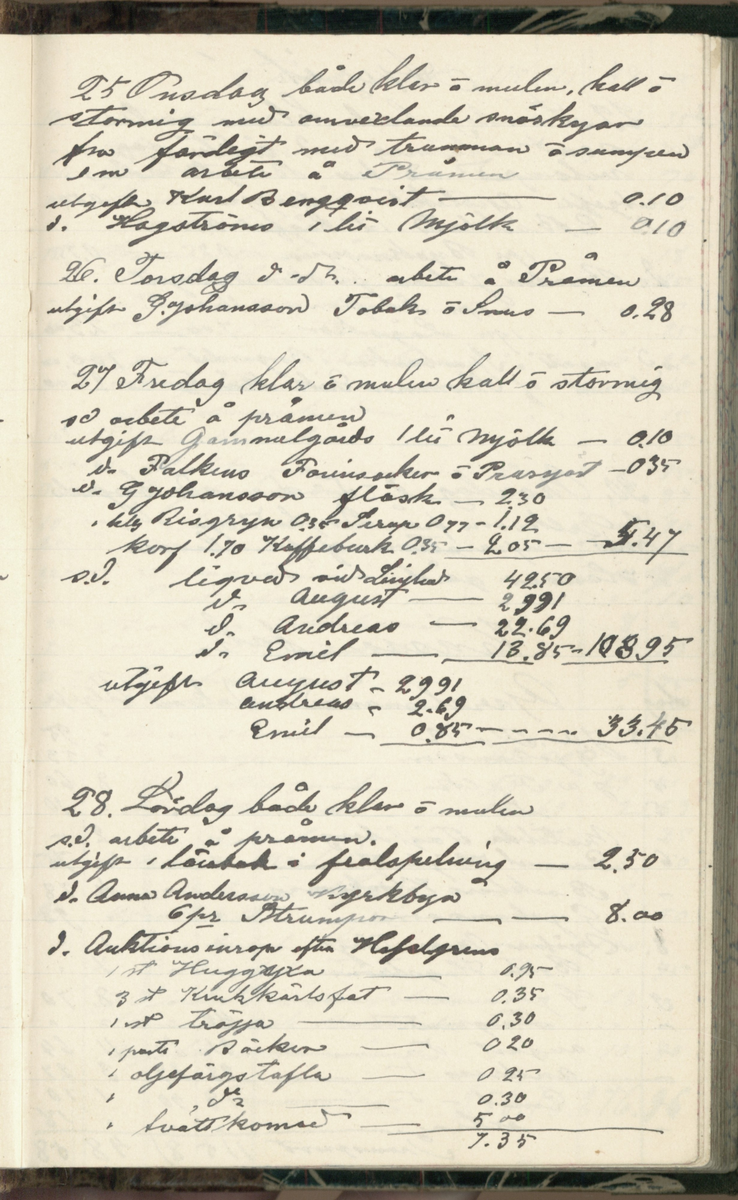 25 Onsdag både klar ō mulen, kall ō
stormig med omvexlande snöskyar
fm färdigt med trumman ō sumpen
em arbete å Pråmen
utgift Karl Bengqvist — 0.10
d. Hagströms 1 lit Mjölk — 0.10
26. Torsdag d-d:.. arbete å Pråmen
utgift G Johansson Tobak ō Snus — 0.28
27 Fredag klar ō mulen kall ō stormig
sd arbete å pråmen
utgift Gammelgårds 1 lit Mjölk — 0.10
d. Falkens Farinsocker ō — 0 35
d. G Johansson fläsk — 2.30
1 kg Risgryn 0.35 Sirap 0 77 - 1.12
korf 1.70 Kaffeburk 0.35 — 2.05 — 5.47
s.d. liqved vid 42.50
d. August — 29 91
d. Andreas — 22.69
d. Emil — 13.85 - 108 95
utgift August - 29 91
Andreas - 2.69
Emil — 0.85 - - - - 33.45
28. Lördag både klar ō mulen
s.d. arbete å pråmen.
utgift 1 i — 2.50
d. Anna Andersson Kyrkbyn
6 pr Strumpor — 8.00
d. Auktionsinrop efter
1 st Huggyxa — 0.95
3 st — 0.35
1 st tröjja — 0.30
1 parti Böcker — 0 20
1 oljefärgstafla — 0 25
1 do — 0.30
1 tvättkomod 5 00
7.35